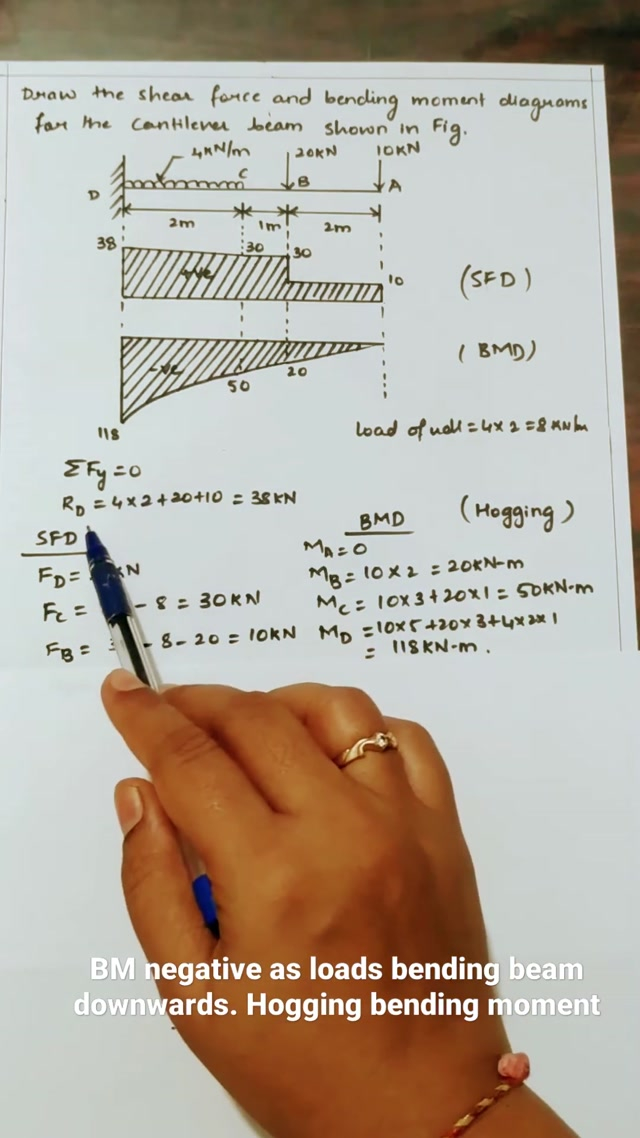 Draw the shear force and bending moment diagrams
for the cantilever beam shown in Fig.
4KN/m 20KN 10KN
D C B A
2m 1m 2m
38 30 30
+ve 10 (SFD)
(BMD)
-ve 50 20
118
load of udl = 4 x 2 = 8 KN/m
ΣFy = 0
RD = 4 x 2 + 20 + 10 = 38KN
SFD
FD = KN
FC = - 8 = 30KN
FB = - 8 - 20 = 10KN
BMD (Hogging)
MA = 0
MB = 10 x 2 = 20KN-m
MC = 10 x 3 + 20 x 1 = 50KN-m
MD = 10 x 5 + 20 x 3 + 4 x 2 x 1
= 118KN-m.
BM negative as loads bending beam
downwards. Hogging bending moment